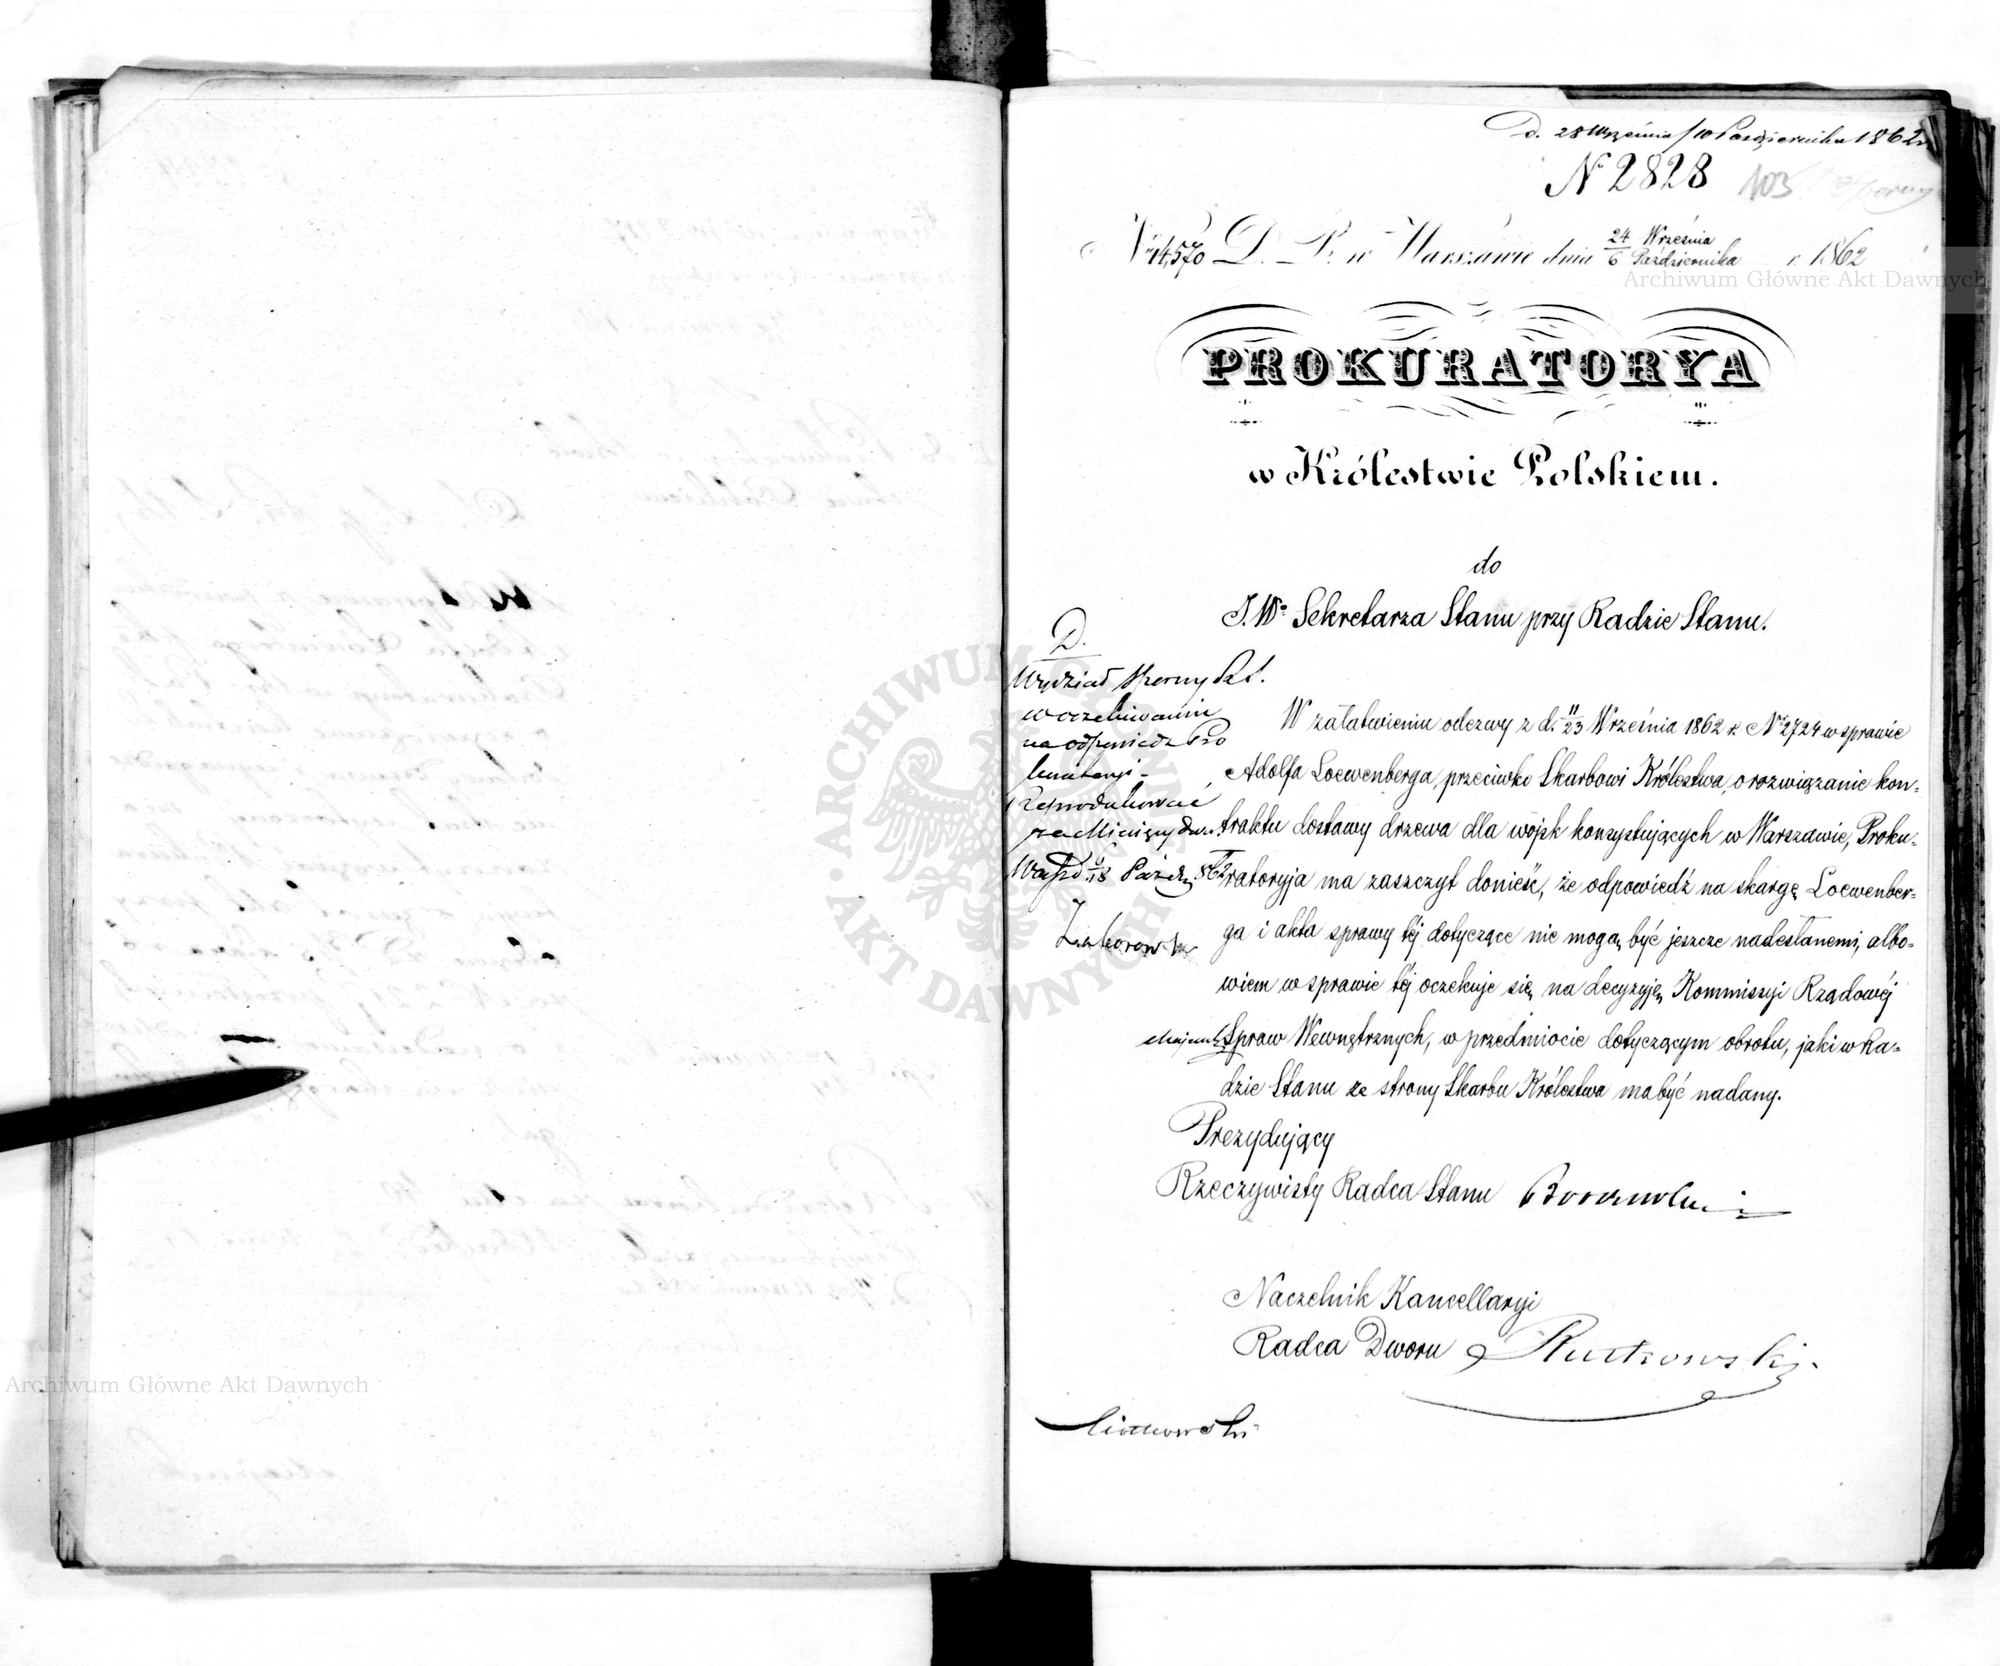 D. 28 Września / 10 Października 1862
N 2828 103
N 14,570 D. P. w Warszawie dnia 24 Września / 6 Października r. 1862
PROKURATORYA
w Królestwie Polskiem.
do
J. Wo Sekretarza Stanu przy Radzie Stanu.
D.
Wydział Sporny
w oczekiwaniu
na odpowiedź Pro
kuratoryi -
Reprodukować
za Miesiąc
Paźdz 862
W załatwieniu odezwy z d. 11/23 Września 1862 r. No 2724 w sprawie
Adolfa Loewenberga, przeciwko Skarbowi Królestwa, o rozwiązanie kon-
traktu dostawy drzewa dla wojsk konsystujących w Warszawie, Proku-
ratoryja ma zaszczyt donieść, że odpowiedź na skargę Loewenber-
ga i akta sprawy téj dotyczące nie mogą być jeszcze nadesłanemi, albo-
wiem w sprawie téj oczekuje się na decyzyję Kommissyi Rządowéj
Spraw Wewnętrznych, w przedmiocie dotyczącym obrotu, jaki w Ra-
dzie Stanu ze strony Skarbu Królestwa ma być nadany.
Prezydujący
Rzeczywisty Radca Stanu
Naczelnik Kancellaryi
Radca Dworu Rutkowski
Archiwum Główne Akt Dawnych
Archiwum Główne Akt Dawnych
ARCHIWUM GŁÓWNE AKT DAWNYCH